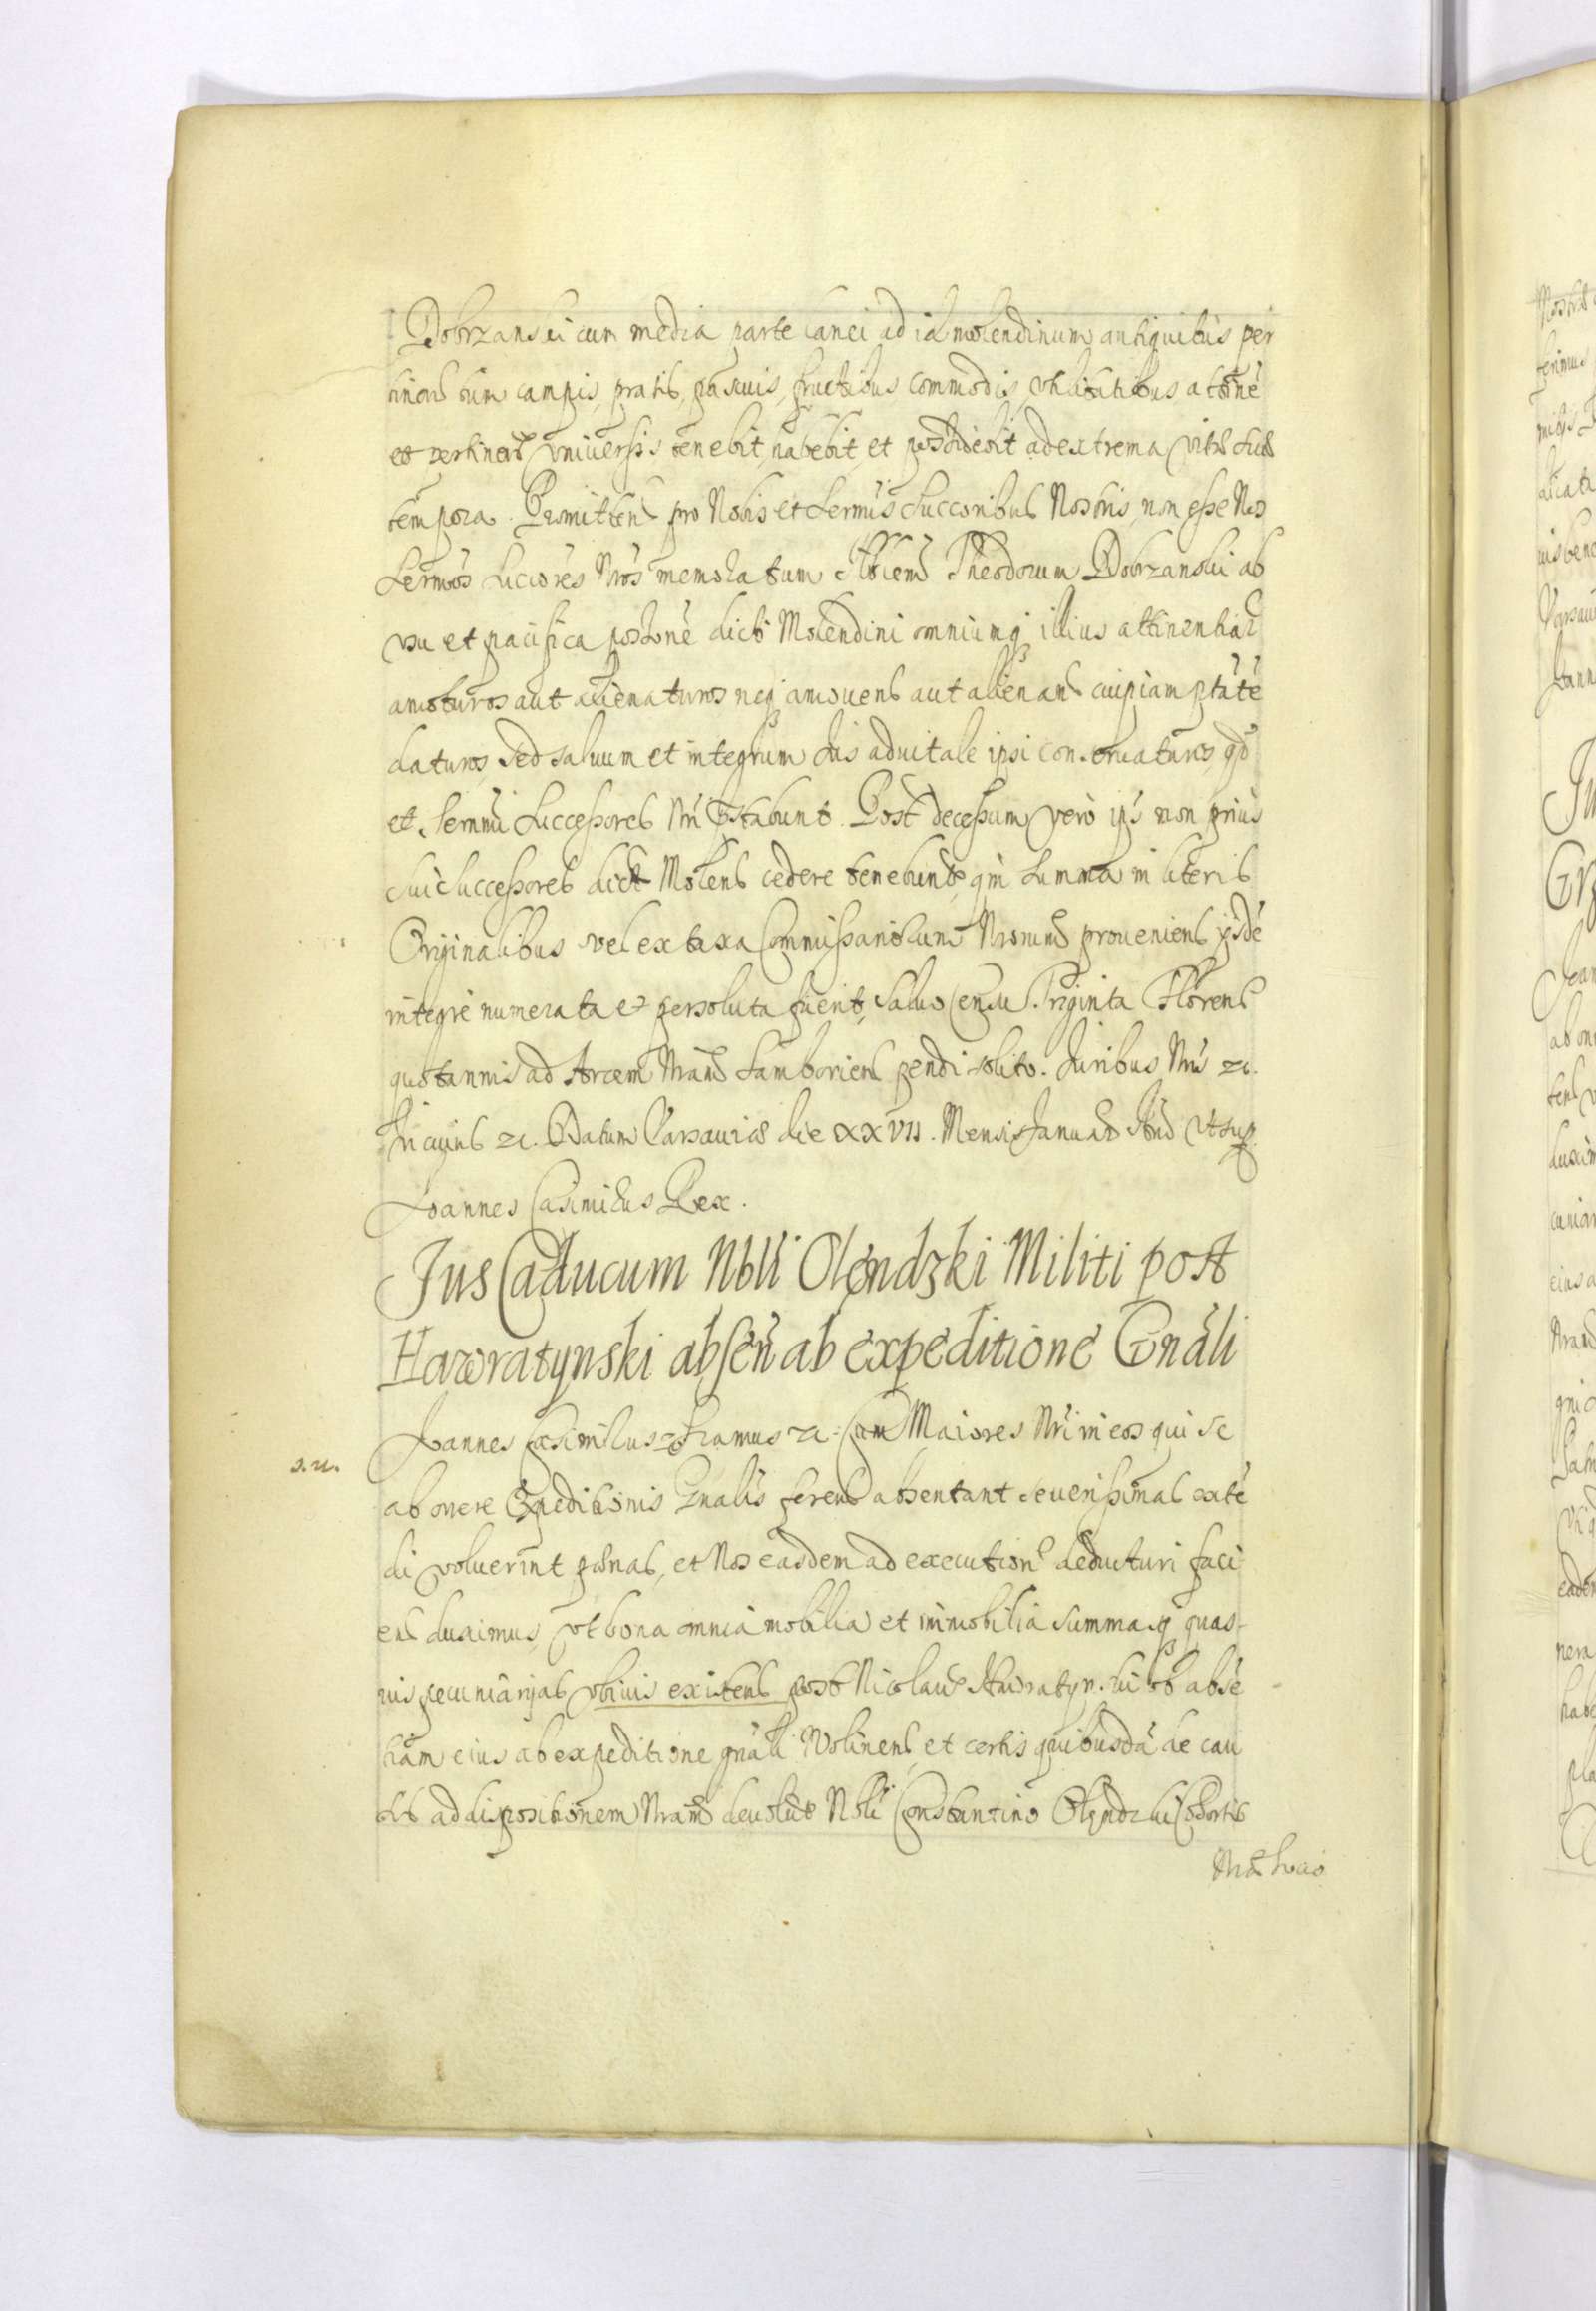 Dobrzanski cum media parte lanei ad id molendinum antiquitus per
tinens cum campis, pratis, pascuis, fructibus commodis, vtilitatibus attinẽ
et pertinens vniuersis tenebit, habebit, et possidebit ad extrema vitæ suæ
tempora. Promittens pro Nobis et Sermis Succoribus Nostris, non esse Nos
Sermos Succores Nros memoratum Theodorum Dobrzanski ab
vsu et pacifica possõne dicti Molendini omniumq illius attinentiar
amoturos aut alienaturos neq amouens aut alienans cuipiam ptãtẽ
daturos, Sed saluum et integrum Ius aduitale ipsi conseruaturos, qd
et Sermi Successores Nri pstabunt. Post decessum vero ips non prius
sui Successores dict Molens cedere tenebunt, qm summa in literis
Originalibus vel ex taxa Commissariorum Nrorum proueniens ysdẽ
integre numerata et persoluta fuerit, saluo censu Triginta Florens
quotannis ad Arcem Nram Samboriens pendi solito. Juribus Nris zc.
In cuius zc. Datum Varsauiæ die XXVII. Mensis Januar And vt sup.
Joannes Casimirus Rex.
Jus Caducum Nbli Olendzki Militi post
Hawratynski absen̄ ab expeditione Gnãli
Joannes Casimirus zc Significamus zc. Cum Maiores Nri in eos qui se
ab onere Expeditionis Gnalis ferens absentant seuerissimas extẽ
di voluerint pœnas, et Nos easdem ad execution deducturi faci
ens duximus, vt bona omnia mobilia et immobilia summasq quas-
uis pecuniarias vbiuis existens post Nicolaum Hawratynski ob absẽ
tiam eius ab expeditione gnãli Wolinens, et certis quibusdã de cau
sis ad dispositionem Nram deuolut Nbli Constantino Olendzki Cohortis
s. u.